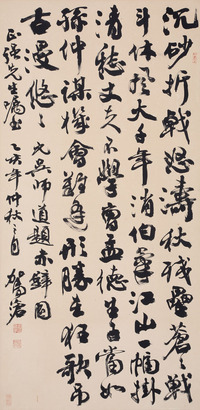 沉砂折戟怒濤秋殘壘蒼〻戰
斗休風火千年消伯氣江山一幅掛
清愁丈夫不學曹孟德生子當如
孫仲謀機會難逢形勝在狂歌弔
古漫悠〻
元吳師道題赤壁圖
正強先生囑書
乙亥年仲秋之月